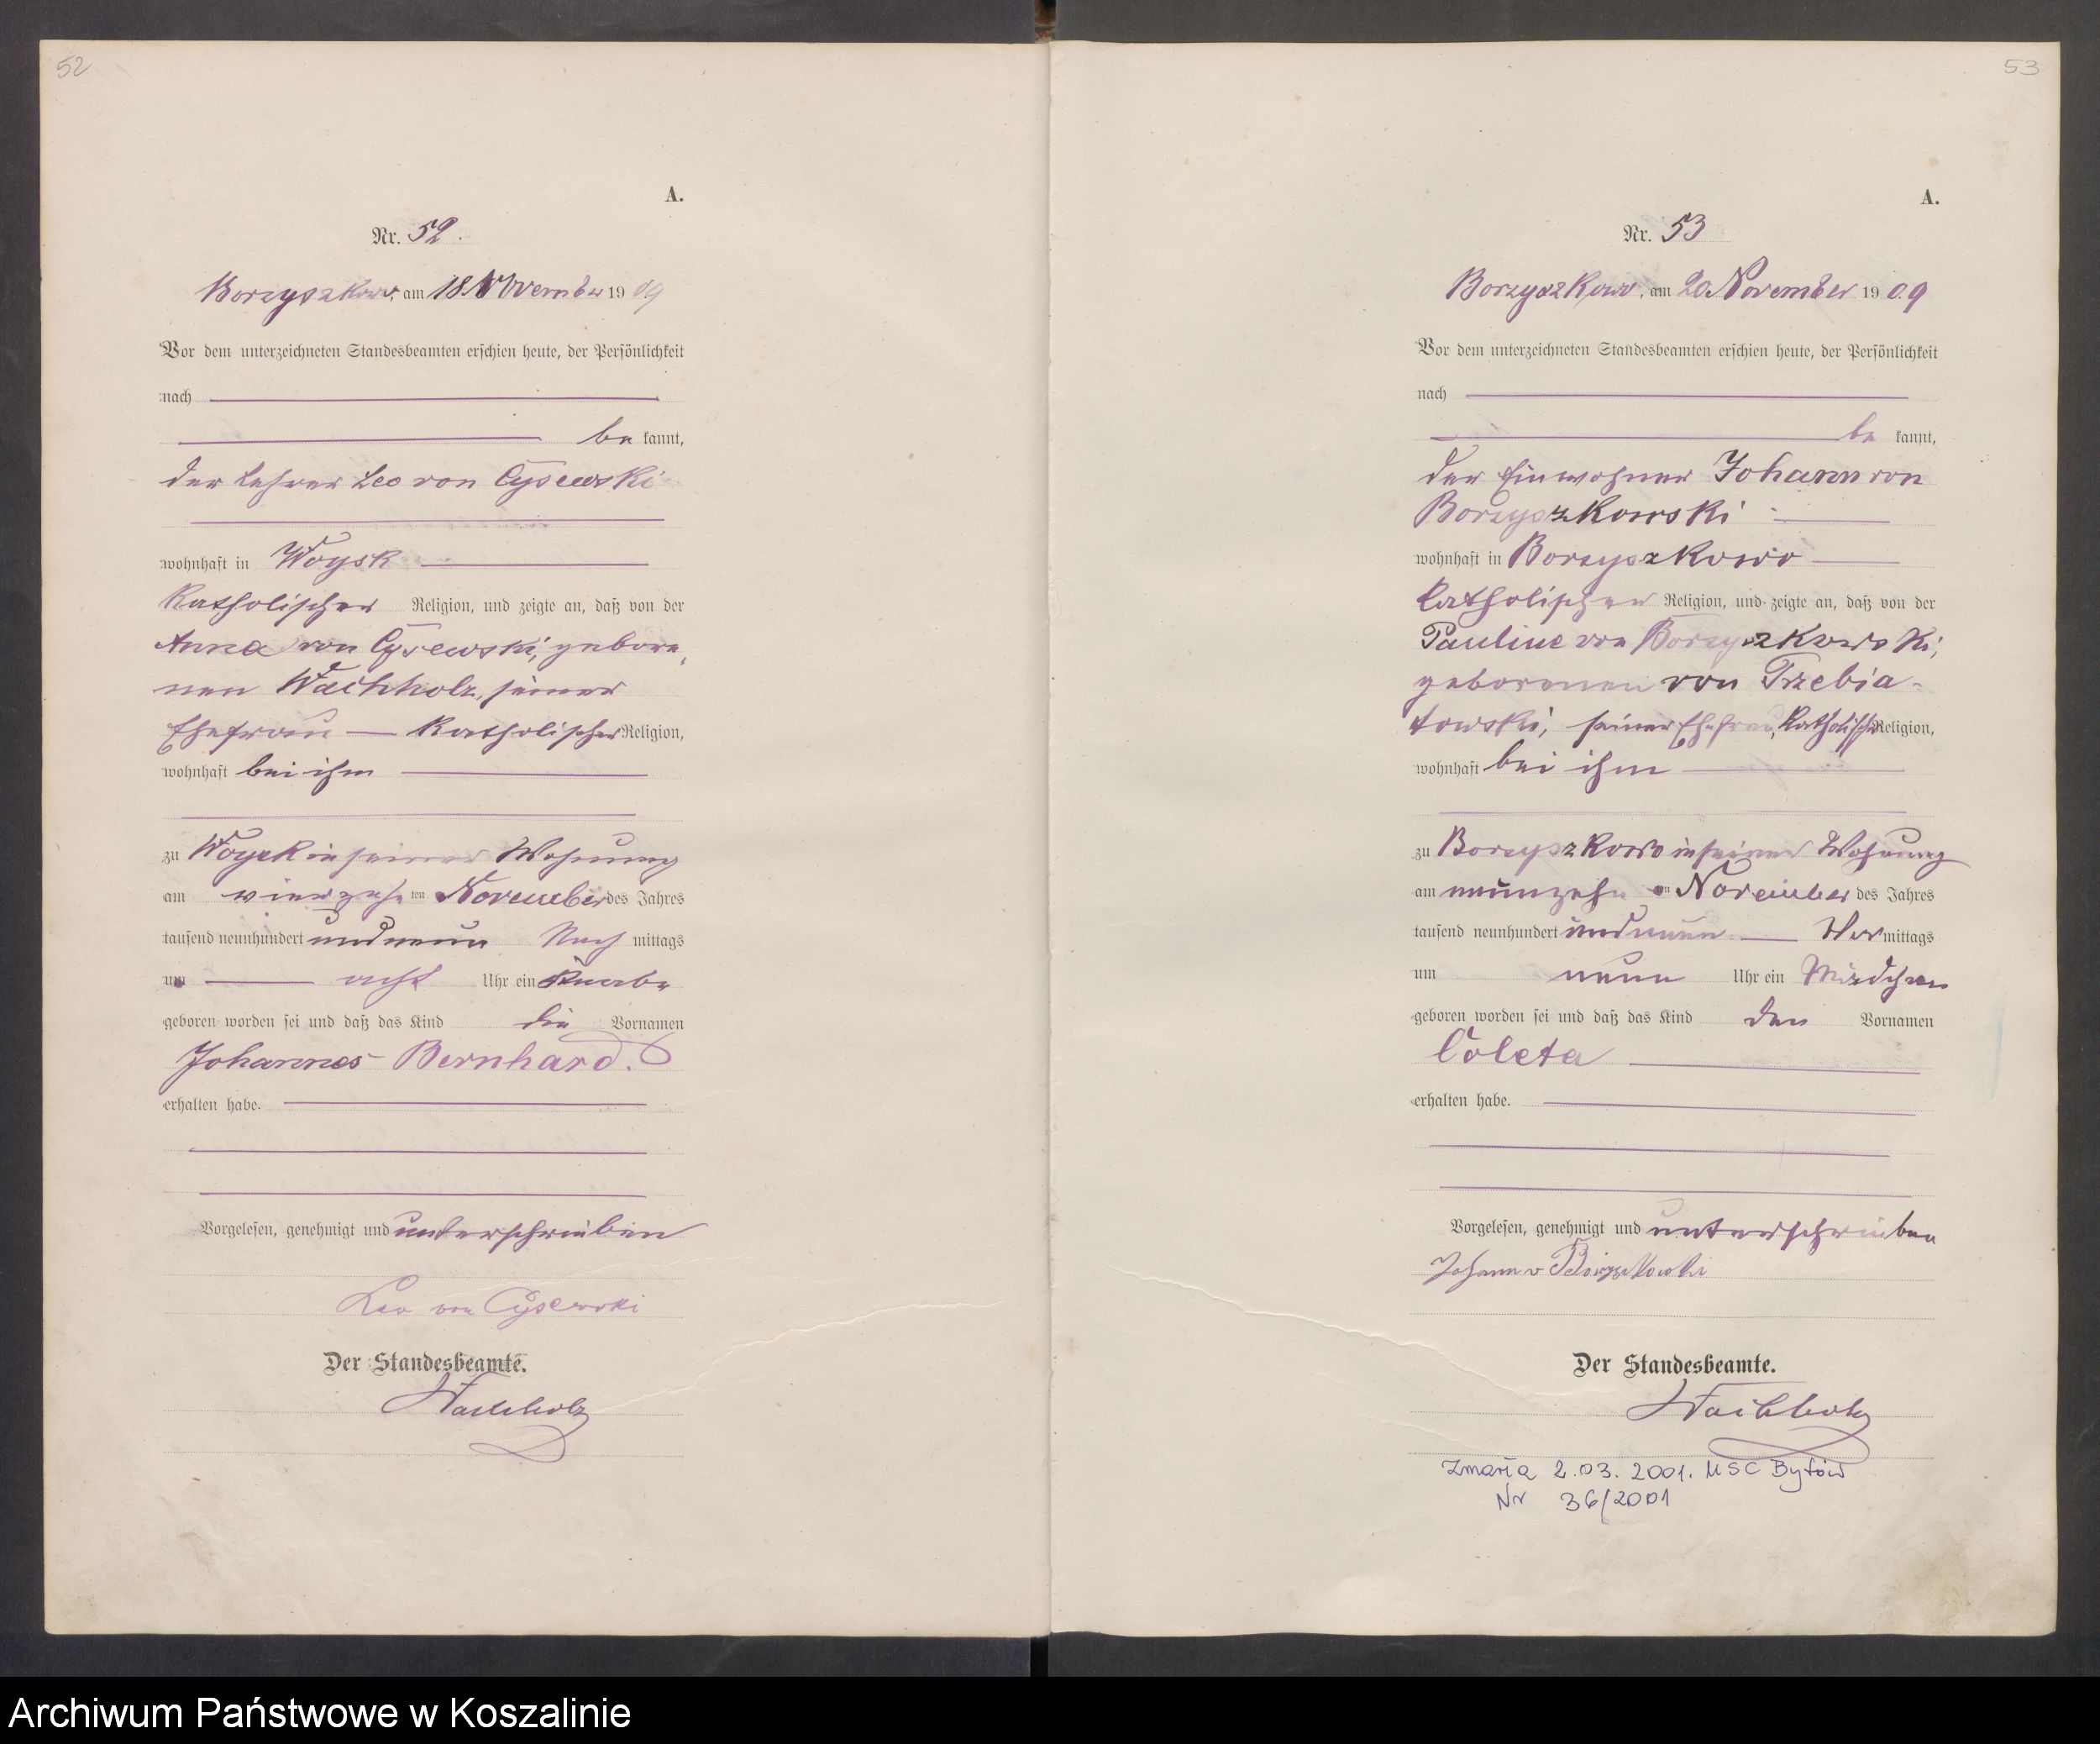 52
A.
Nr. 52.
Borzyszkowo, am 18 November 1909
Vor dem unterzeichneten Standesbeamten erschien heute, der Persönlichkeit
nach
be kannt,
der Lehrer Leo von Cysewski
wohnhaft in Woysk
Katholischer Religion, und zeigte an, daß von der
Anna von Cysewski, gebore,
nen Wachholz, seiner
Ehefrau — Katholischer Religion,
wohnhaft bei ihm
zu Woysk in seiner Wohnung
am vierzehn ten November des Jahres
tausend neunhundert und neun Nach mittags
um acht Uhr ein Knabe
geboren worden sei und daß das Kind die Vornamen
Johannes Bernhard.
erhalten habe.
Vorgelesen, genehmigt und unterschrieben
Leo von Cysewski
Der Standesbeamte.
Wachholz
53
A.
Nr. 53
Borzyszkowo, am 20 November 1909
Vor dem unterzeichneten Standesbeamten erschien heute, der Persönlichkeit
nach
be kannt,
der Einwohner Johann von
Borzyszkowski
wohnhaft in Borzyszkowo
katholischer Religion, und zeigte an, daß von der
Pauline von Borzyszkowski,
geborenen von Trzebia-
towski, seiner Ehefrau, katholischer Religion,
wohnhaft bei ihm
zu Borzyszkowo in seiner Wohnung
am neunzehn ten November des Jahres
tausend neunhundert und neun — Vor mittags
um neun Uhr ein Mädchen
geboren worden sei und daß das Kind den Vornamen
Coleta
erhalten habe.
Vorgelesen, genehmigt und unterschrieben
Johann v Borzyszkowski
Der Standesbeamte.
Wachholz
Zmarła 2.03.2001. USC Bytów
Nr 36/2001
Archiwum Państwowe w Koszalinie